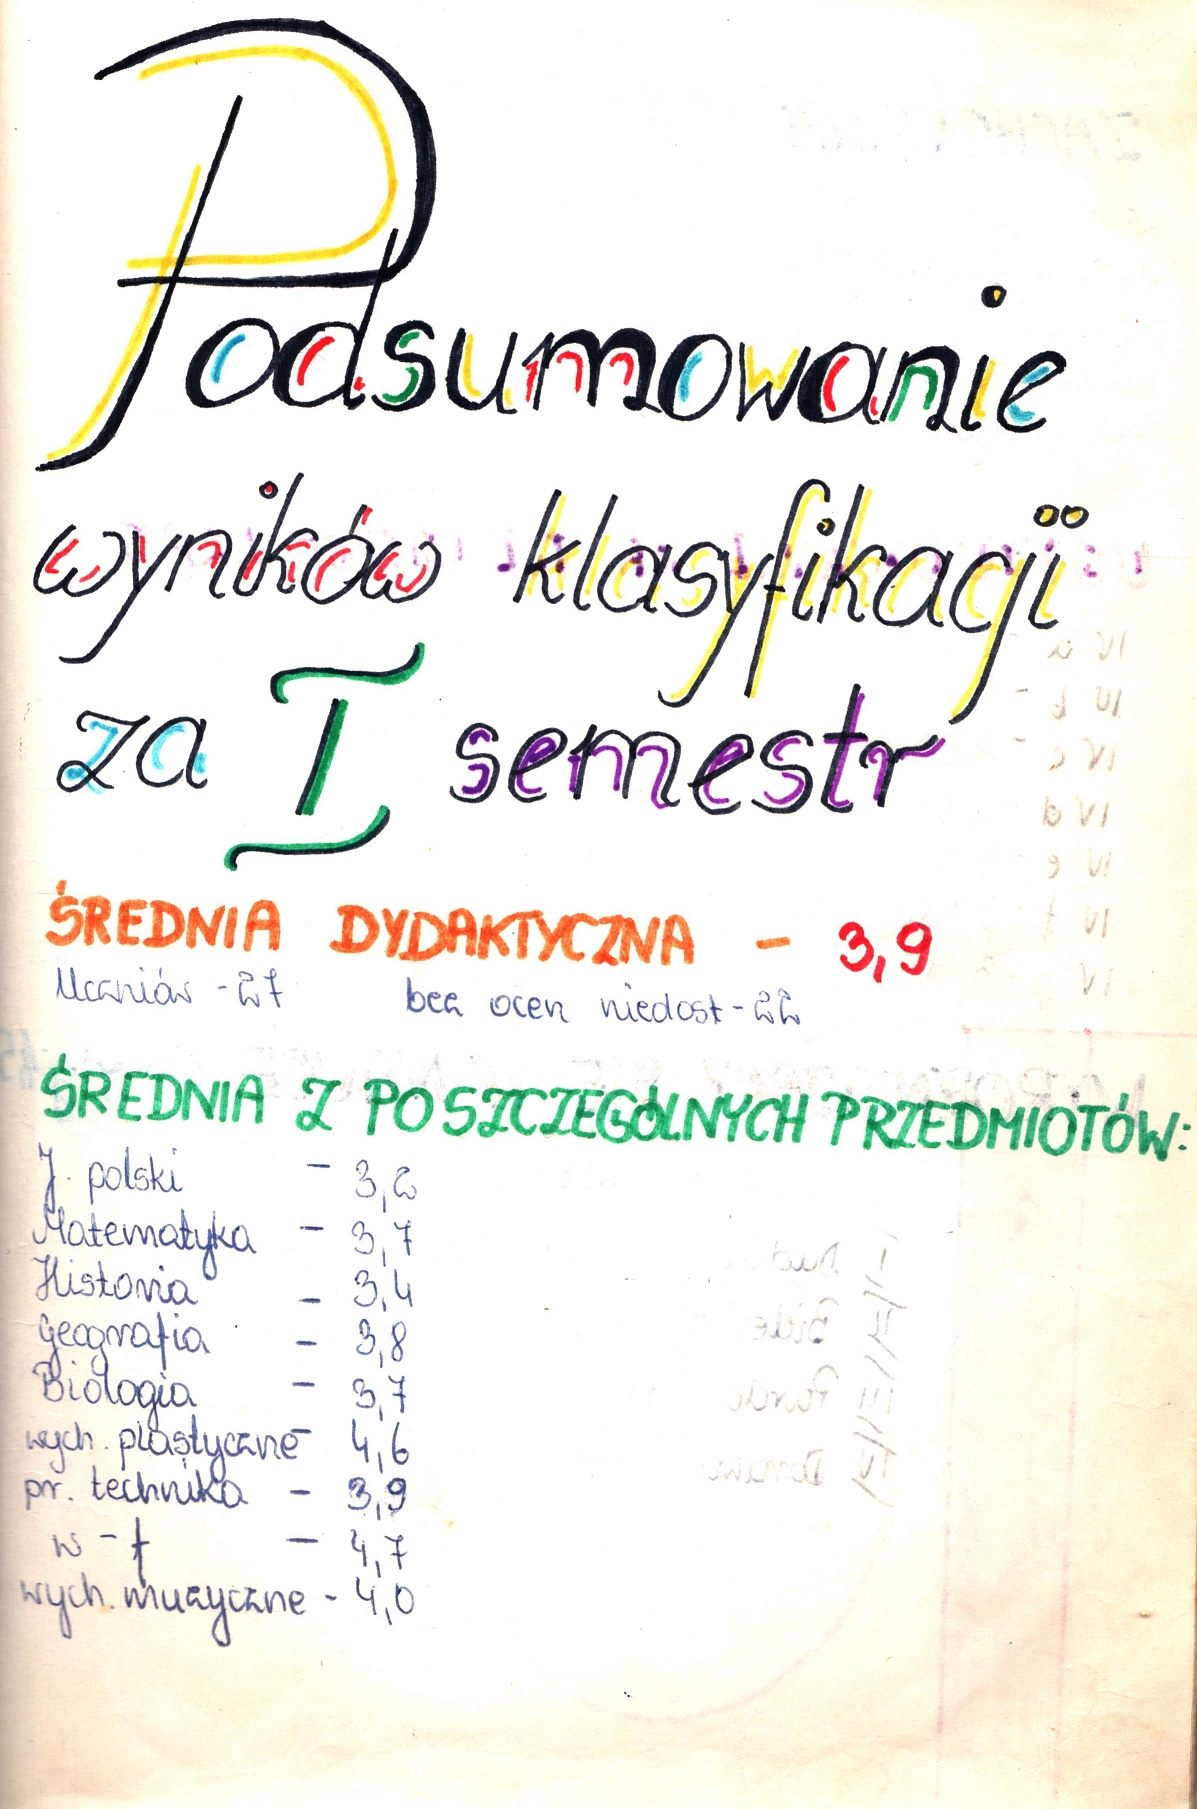 Podsumowanie
wyników klasyfikacji
za I semestr
ŚREDNIA DYDAKTYCZNA - 3,9
Uczniów - 27 bez ocen niedost - 22
ŚREDNIA Z POSZCZEGÓLNYCH PRZEDMIOTÓW:
J. polski - 3,2
Matematyka - 3,7
Historia - 3,4
Geografia - 3,8
Biologia - 3,7
wych. plastyczne - 4,6
pr. technika - 3,9
w - f - 4,7
wych. muzyczne - 4,0